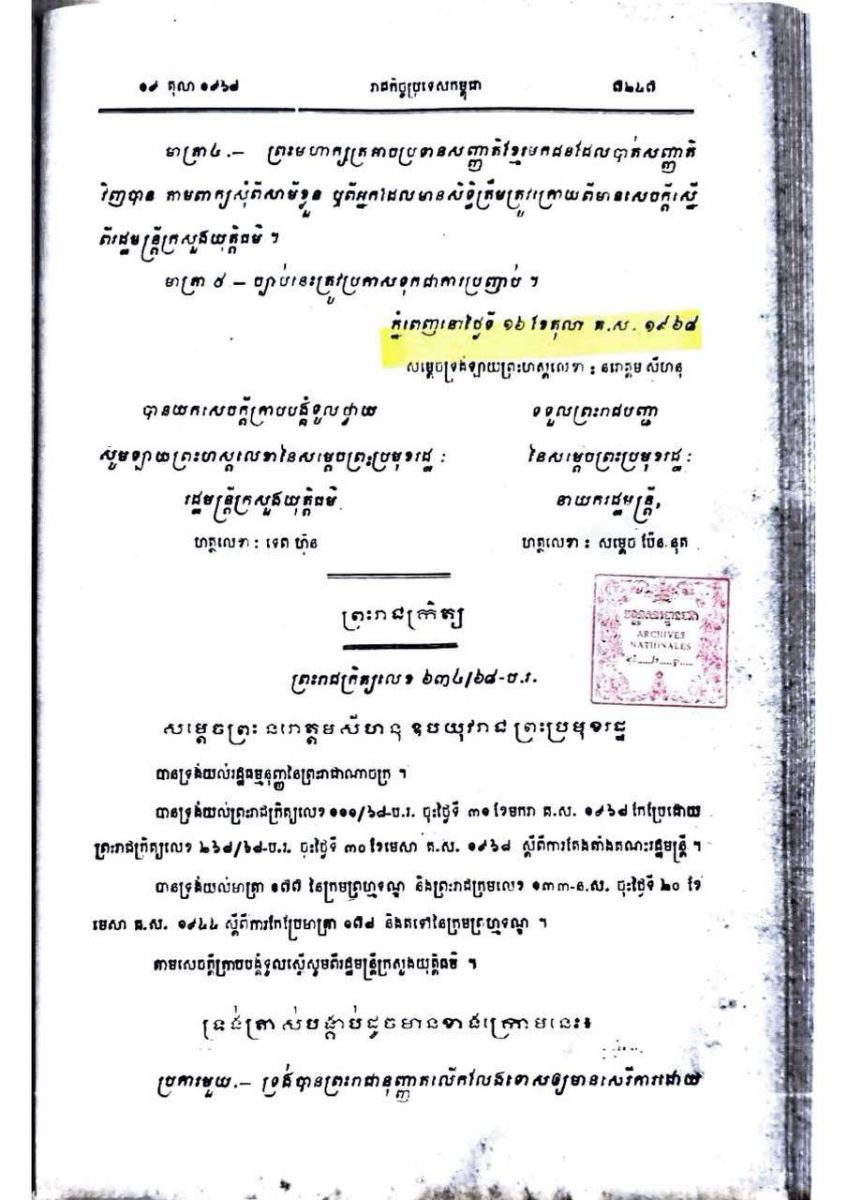 ១៩ តុលា ១៩៦៨ រាជកិច្ចប្រទេសកម្ពុជា ៧២៤៧
មាត្រា៤.— ព្រះមហាក្សត្រអាចប្រទានសញ្ជាតិខ្មែរមកជនដែលបាត់សញ្ជាតិ
វិញបាន តាមពាក្យសុំពីសាមីខ្លួន ឬពីអ្នកដែលមានសិទ្ធិត្រឹមត្រូវក្រោយពីមានសេចក្ដីស្នើ
ពីរដ្ឋមន្ត្រីក្រសួងយុត្តិធម៌ ។
មាត្រា ៥ — ច្បាប់នេះត្រូវប្រកាសទុកជាការប្រញាប់ ។
ភ្នំពេញនៅថ្ងៃទី ១៦ ខែតុលា គ.ស. ១៩៦៨
សម្ដេចទ្រង់ឡាយព្រះហស្ដលេខា : នរោត្ដម សីហនុ
បានយកសេចក្ដីក្រាបបង្គំទូលថ្វាយ ទទួលព្រះរាជបញ្ជា
សូមឡាយព្រះហស្ដលេខានៃសម្ដេចព្រះប្រមុខរដ្ឋ : នៃសម្ដេចព្រះប្រមុខរដ្ឋ :
រដ្ឋមន្ត្រីក្រសួងយុត្តិធម៌ នាយករដ្ឋមន្ត្រី,
ហត្ថលេខា : ទេព ហ៊ុន ហត្ថលេខា : សម្ដេច ប៉ែន.នុត
ព្រះរាជក្រិត្យ
បណ្ណសារដ្ឋានជាតិ
ARCHIVES
NATIONALES
ព្រះរាជក្រិត្យលេខ ៦៣៤/៦៨-ប.រ.
សម្ដេចព្រះ នរោត្ដមសីហនុ ឧបយុវរាជ ព្រះប្រមុខរដ្ឋ
បានទ្រង់យល់រដ្ឋធម្មនុញ្ញនៃព្រះរាជាណាចក្រ ។
បានទ្រង់យល់ព្រះរាជក្រិត្យលេខ ១១១/៦៨-ប.រ. ចុះថ្ងៃទី ៣១ ខែមករា គ.ស. ១៩៦៨ កែប្រែដោយ
ព្រះរាជក្រិត្យលេខ ២៦៨/៦៨-ប.រ. ចុះថ្ងៃទី ៣០ ខែមេសា គ.ស. ១៩៦៨ ស្ដីពីការតែងតាំងគណៈរដ្ឋមន្ត្រី ។
បានទ្រង់យល់មាត្រា ១៧៧ នៃក្រមព្រហ្មទណ្ឌ និងព្រះរាជក្រមលេខ ១៣៣-ន.ស. ចុះថ្ងៃទី ២០ ខែ
មេសា គ.ស. ១៩៤៤ ស្ដីពីការកែប្រែមាត្រា ១៧៨ និងតទៅនៃក្រមព្រហ្មទណ្ឌ ។
តាមសេចក្ដីក្រាបបង្គំទូលស្នើសូមពីរដ្ឋមន្ត្រីក្រសួងយុត្តិធម៌ ។
ទ្រង់ត្រាស់បង្គាប់ដូចមានខាងក្រោមនេះ៖
ប្រការមួយ.— ទ្រង់បានព្រះរាជានុញ្ញាតលើកលែងទោសឲ្យមានសេរីការដោយ